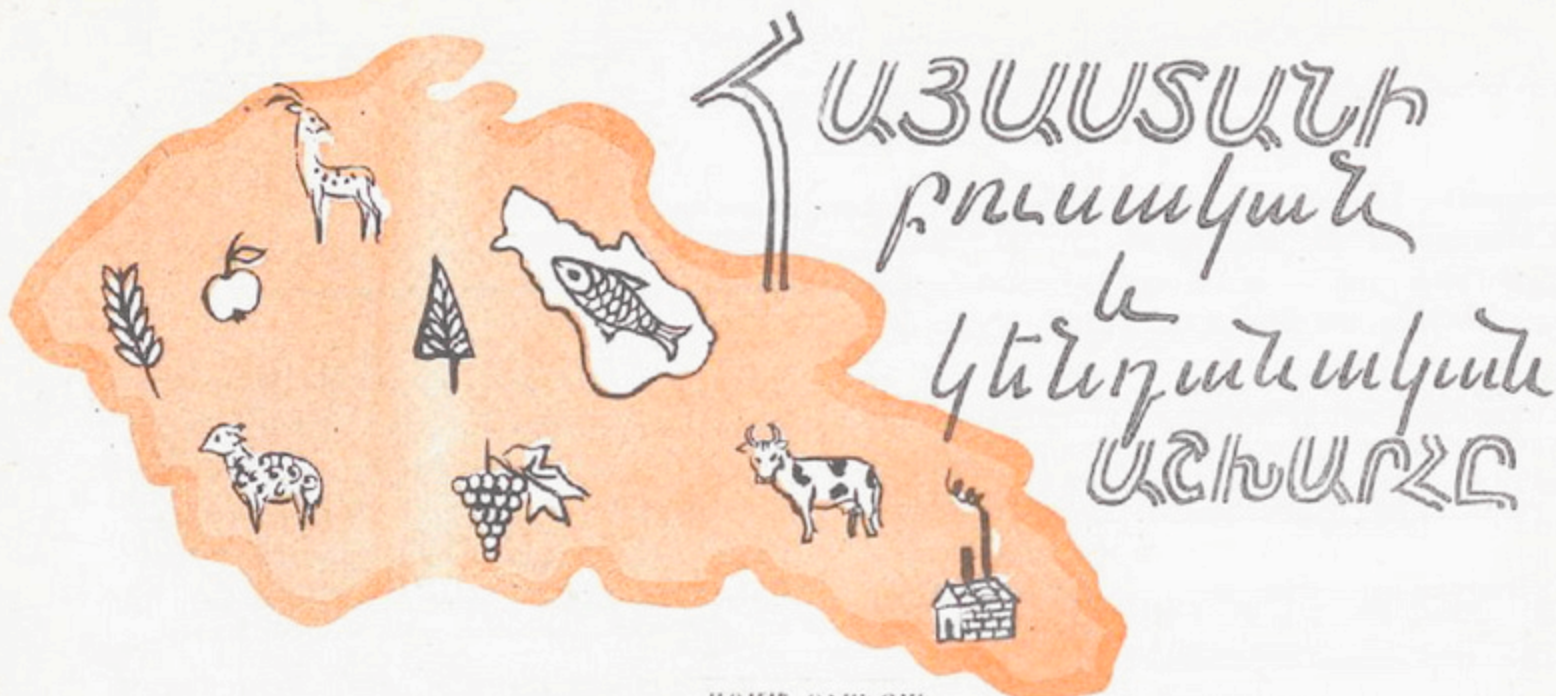 ՀԱՅԱՍՏԱՆԻ
բուսական
և
կենդանական
ԱՇԽԱՐՀԸ